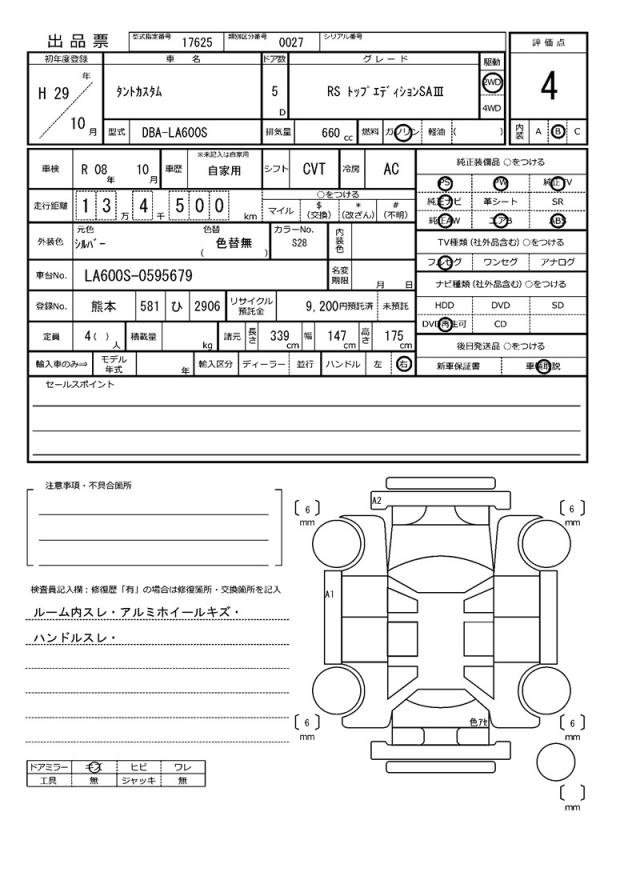 出品票 型式指定番号 17625 類別区分番号 0027 シリアル番号
評価点
4
内装 A B C
初年度登録 車名 ドア数 グレード 駆動
H 29 年 10 月
タントカスタム 5 D RS トップエディションSAⅢ 2WD 4WD
型式 DBA-LA600S 排気量 660 cc 燃料 ガソリン 軽油 ( )
車検 R 08 年 10 月 車歴 ※未記入は自家用 自家用 シフト CVT 冷房 AC
走行距離 1 3 万 4 千 5 0 0 km
○をつける
マイル $(交換) *(改ざん) #(不明)
外装色 元色 シルバー 色替 色替無 ( ) カラーNo. S28 内装色
車台No. LA600S-0595679 名変期限 月 日
登録No. 熊本 581 ひ 2906 リサイクル預託金 9,200円預託済 未預託
定員 4 ( ) 人 積載量 kg 諸元 長さ 339 cm 幅 147 cm 高さ 175 cm
輸入車のみ⇒ モデル年式 年 輸入区分 ディーラー 並行 ハンドル 左 右
純正装備品 ○をつける
PS PW 純正TV
純正ナビ 革シート SR
純正AW エアB ABS
TV種類 (社外品含む) ○をつける
フルセグ ワンセグ アナログ
ナビ種類 (社外品含む) ○をつける
HDD DVD SD
DVD再生可 CD
後日発送品 ○をつける
新車保証書 車輌取説
セールスポイント
注意事項・不具合箇所
検査員記入欄：修復歴「有」の場合は修復箇所・交換箇所を記入
ルーム内スレ・アルミホイールキズ・
ハンドルスレ・
ドアミラー キズ ヒビ ワレ
工具 無 ジャッキ 無
A2
6 mm
6 mm
A1
色アセ
6 mm
6 mm
mm